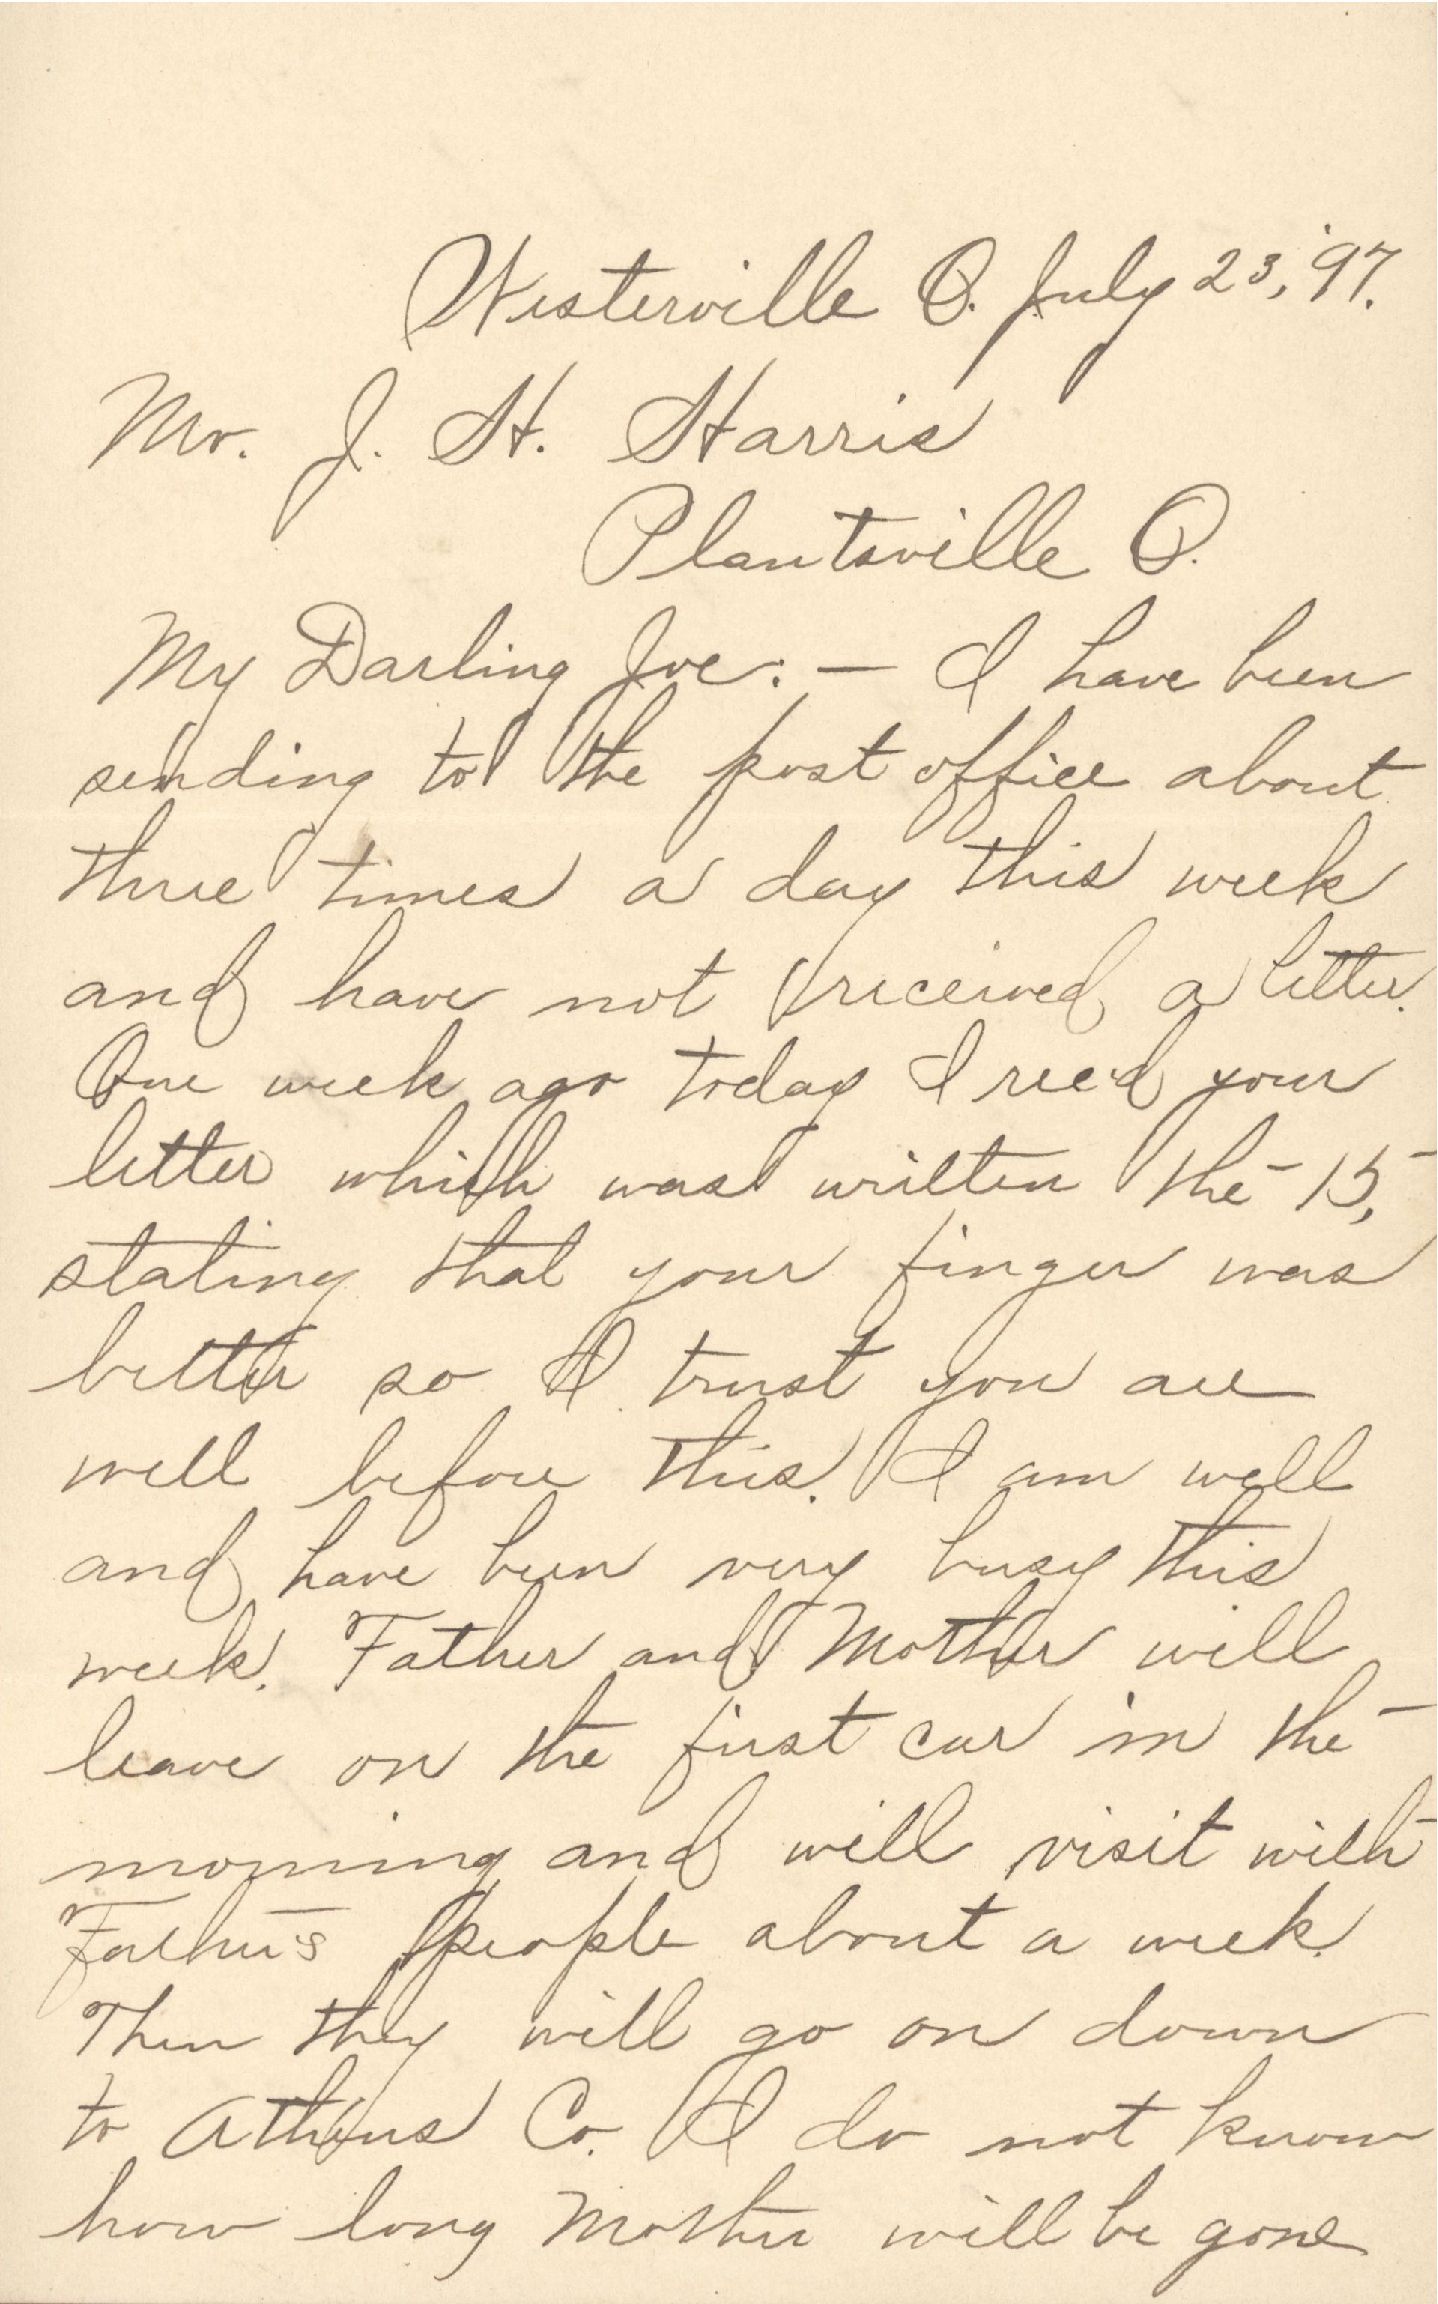 Westerville O. July 23, '97.
Mr. J. H. Harris
Plantsville O.
My Darling Joe: — I have been
sending to the post office about
three times a day this week
and have not received a letter.
One week ago today I rec'd your
letter which was written the 15,
stating that your finger was
better so I trust you are
well before this. I am well
and have been very busy this
week. Father and Mother will
leave on the first car in the
morning and will visit with
Father's people about a week.
Then they will go on down
to Athens Co. I do not know
how long Mother will be gone